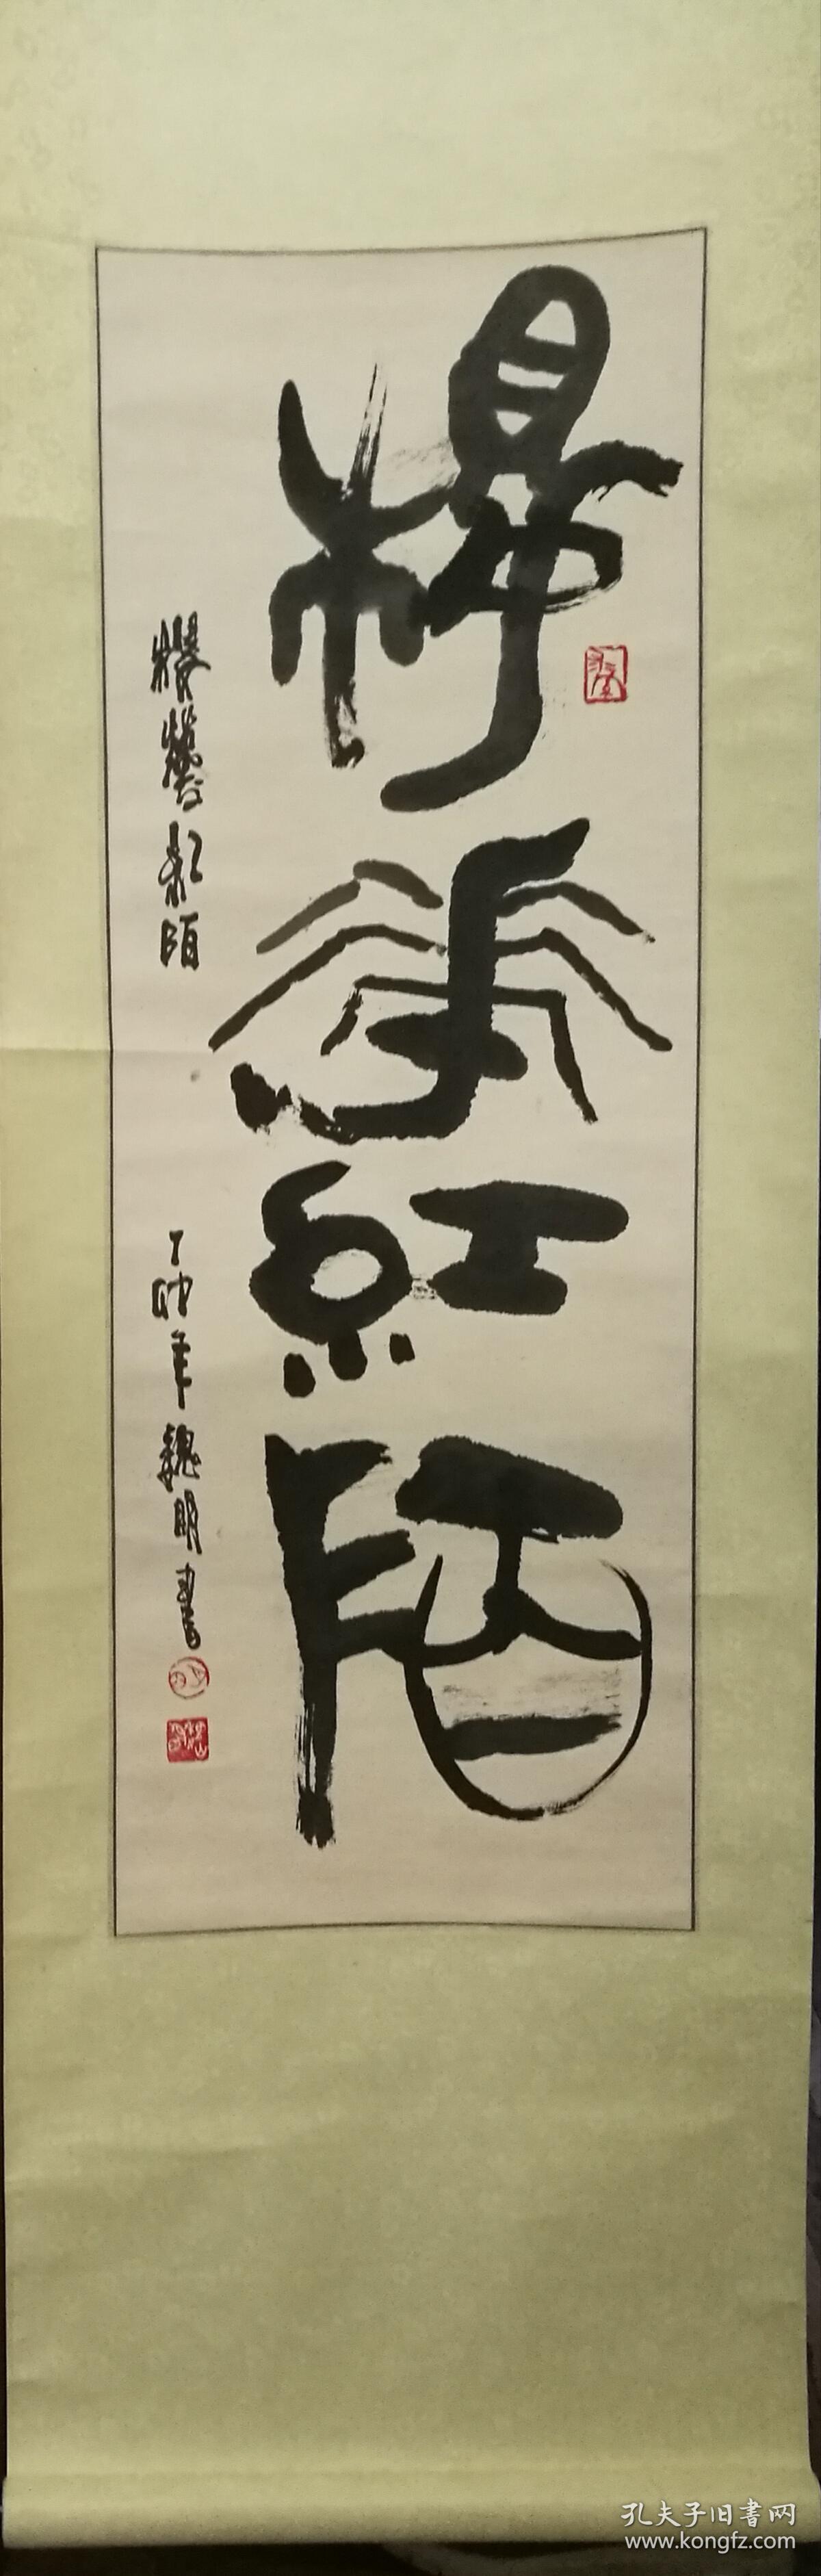 櫻華紅陌
櫻花紅陌 丁卯年魏明書
孔夫子旧书网
www.kongfz.com